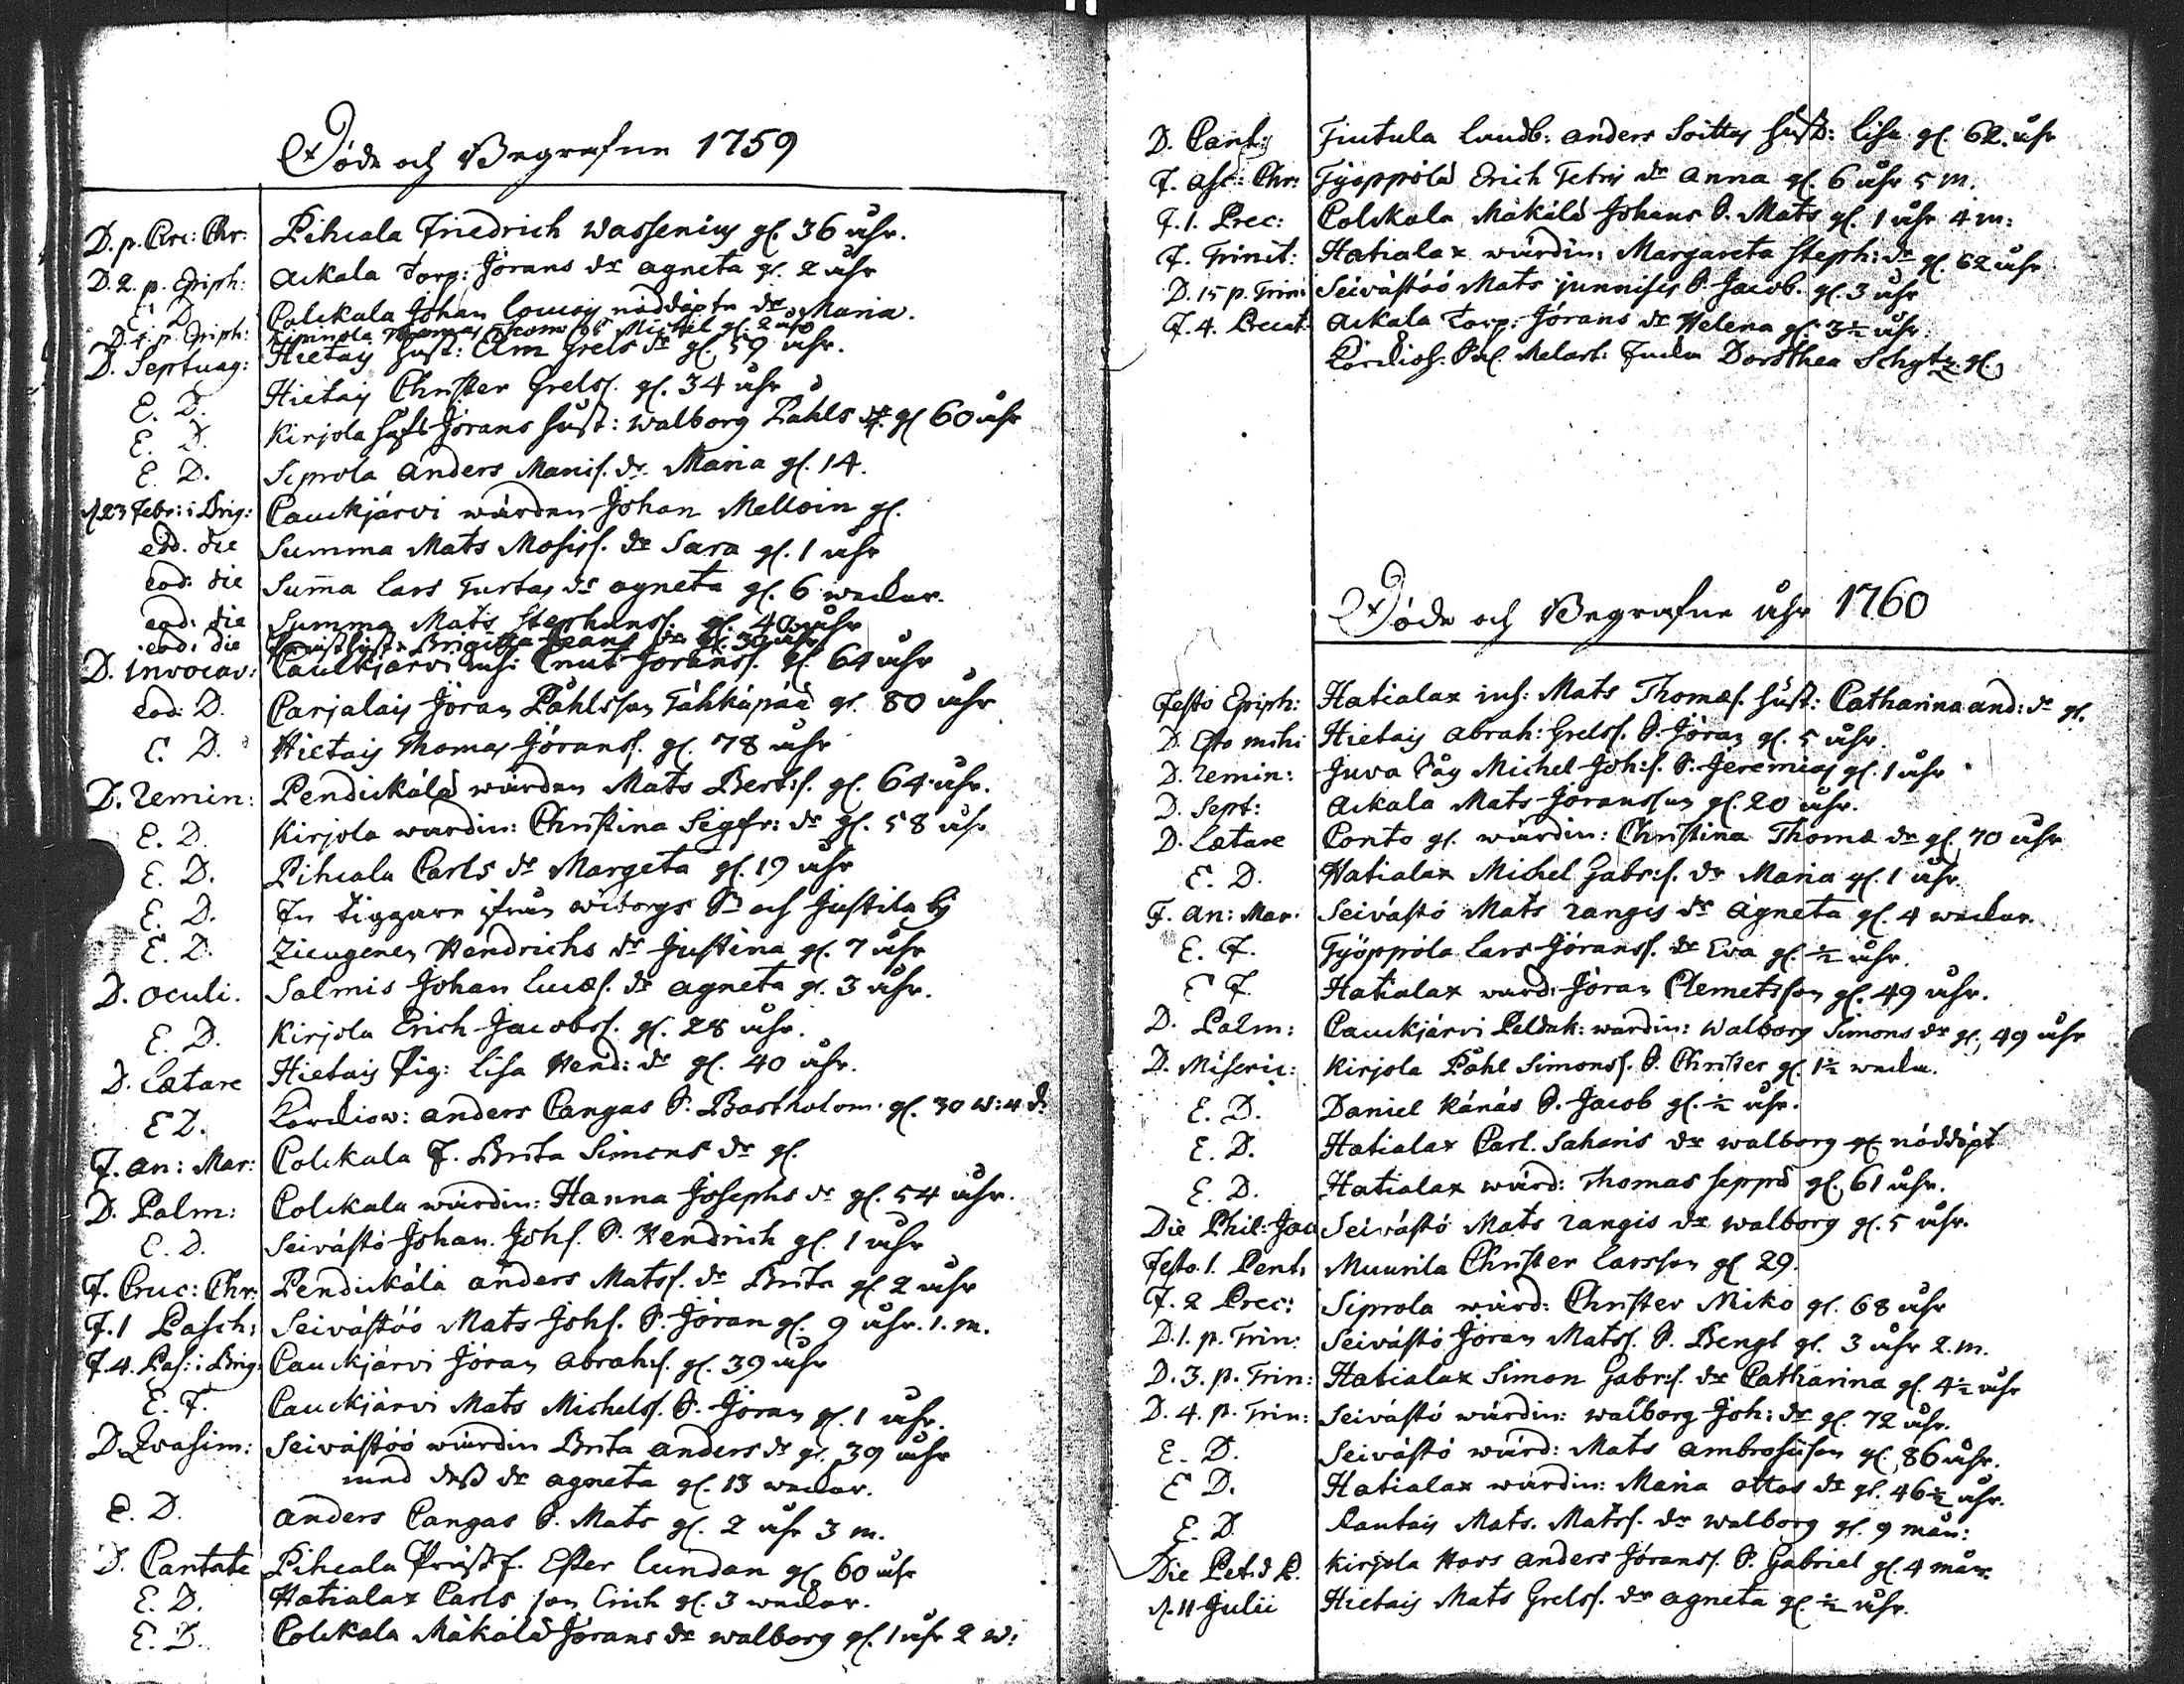 Döde och Begrafne 1759
D. p. Circ: Chr: Pihcala Friedrich Wassenius gl. 36 åhr.
D. 2. p. Epiph: Ackala Torp: Jörans dr Agneta gl. 2 åhr
E. D. Colckala Johan nöddöpte dr Maria.
D. 4. p. Epiph: Thomas Michel gl. 2 åhr
D. Septuag: Hietais Hust: Elin Grels dr gl. 59 åhr.
E. D. Hietais Christer Grelss. gl. 34 åhr
E. D. Kirjola Jörans hust: Walborg Påhls dr gl 60 åhr
E. D. Seprola Anders Manis. dr Maria gl. 14.
d. 23 Febr: i Brig: Cauckjärvi wärden Johan Melloin gl.
eod. die Summa Mats Mosiss. dr Sara gl. 1 åhr
eod: die Sum̄a Lars Turtas dr Agneta gl. 6 weckor.
eod: die Summa Mats Stephanss. gl. 40 åhr
eod: die Brigitta dr gl. 30 åhr
D. Invocav: Cauckjärvi inh: Cnut Jöranss. gl. 64 åhr
eod: D. Carjalais Jöran Påhlsson Tåhkäpää gl. 80 åhr
E. D. Hietais Thomas Jöranss. gl. 78 åhr
D. Remin: Pendickälä wärden Mats Bert:s. gl. 64 åhr.
E. D. Kirjola wärdin: Christina Sigfr: dr gl. 58 åhr
E. D. Pihcala Carls dr Margeta gl. 19 åhr
E. D. En Tiggare ifrån Wiborgs Sn och Justila by
E. D. Zieugenen Hendrichs dr Justina gl. 7 åhr
D. Oculi. Salmis Johan Lucæs. dr Agneta gl. 3 åhr.
E. D. Kirjola Erich Jacobss. gl. 28 åhr.
D. Lætare Hietais Pig: Lisa Hend: dr gl. 40 åhr.
E D. Kordiow: Anders Cangas S. Bartholom: gl. 30 w: 4 d.
F. An: Mar: Colckala F. Brita Simons dr gl.
D. Palm: Colckala wärdin: Hanna Josephs dr gl. 54 åhr.
E. D. Seivästö Johan. Johs. S. Hendrich gl. 1 åhr
F. Cruc: Chr: Pendickälä Anders Matss. dr Brita gl 2 åhr
F. 1 Pasch: Seivästöö Mats Johs. S. Jöran gl. 9 åhr. 1. m.
F. 4. Pas: i Brig: Cauckjärvi Jöran Abrah:s. gl. 39 åhr
E. F. Cauckjärvi Mats Michelss. S. Jöran gl. 1 åhr.
D. Qvasim: Seivästöö wärdin Brita Anders dr gl. 39 åhr
med dess dr Agneta gl. 13 weckor.
E. D. Anders Cangas S. Mats gl. 2 åhr 3 m.
D. Cantate Pihcala Ester Lundan gl. 60 åhr
E. D. Hatialax Carls son Erich gl. 3 weckor.
E. D. Colckala Mäkälä Jörans dr Walborg gl. 1 åhr 2 w:
D. Cant: Tiutula Landb: Anders Soittus hust: Lisa gl. 62. åhr
F. Asc: Chr: Työppölä Erich Tetris dr Anna gl. 6 åhr 5 m.
F. 1. Prec: Colckala Mäkälä Johans S. Mats gl. 1 åhr 4 m:
F. Trinit: Hatialax wärdin: Margareta Steph: dr gl. 62 åhr
D. 15 p. Trin: Seivästöö Mats Junnisis S. Jacob. gl. 3 åhr
F. 4. Precat: Ackala Torp: Jörans dr Helena gl. 3½ åhr:
Kordiosh: Melart: Dorothea Schytz gl.
Döde och Begrafne åhr 1760
Festo Epiph: Hatialax inh: Mats Thomæs. hust: Catharina And: dr gl.
D. Esto mihi Hietais Abrah: Grelss. S. Jöran gl. 5 åhr.
D. Remin: Juva Såg Michel Joh:s. S. Jeremias gl. 1 åhr
D. Sept: Ackala Mats Jöransson gl. 20 åhr.
D. Lætare Conto gl. wärdin: Christina Thomæ dr gl. 70 åhr
E. D. Hatialax Michel Gabr:s. dr Maria gl. 1 åhr.
F. An: Mar. Seivästö Mats Rangis dr Agneta gl. 4 weckor.
E. F. Työppölä Lars Jöranss. dr Eva gl. ½ åhr.
E F. Hatialax wärd: Jöran Clemetsson gl. 49 åhr.
D. Palm: Cauckjärvi Peldak: wärdin: Walborg Simons dr gl. 49 åhr
D. Miseric: Kirjola Påhl Simonss. S. Christer gl. 1½ wecka.
E. D. Daniel Känäs S. Jacob gl. ½ åhr.
E. D. Hatialax Carl. Saharis dr Walborg gl. nöddöpt
E. D. Hatialax wärd: Thomas Seppä gl. 61 åhr.
Die Phil: Jac Seivästö Mats Rangis dr Walborg gl. 5 åhr.
Festo. 1. Pent: Muurila Christer Larsson gl 29.
F. 2 Prec: Siprola wärd: Christer Miko gl. 68 åhr
D. 1. p. Trin: Seivästö Jöran Matss. S. Bengt gl. 3 åhr 2. m.
D. 3. p. Trin: Hatialax Simon Gabr:s. dr Catharina gl. 4½ åhr
D. 4. p. Trin: Seivästö wärdin: Walborg Joh: dr gl. 72 åhr.
E. D. Seivästö wärd: Mats Ambrosiison gl. 86 åhr.
E D. Hatialax wärdin: Maria Ottos dr gl. 46½ åhr.
E. D Rautais Mats. Matss. dr Walborg gl. 9 mån:
Die Pet. & P. Kirjola Hors Anders Jöranss. S. Gabriel gl. 4 mån.
d. 11 Julii Hietais Mats Grelss. dr Agneta gl. ½ åhr.